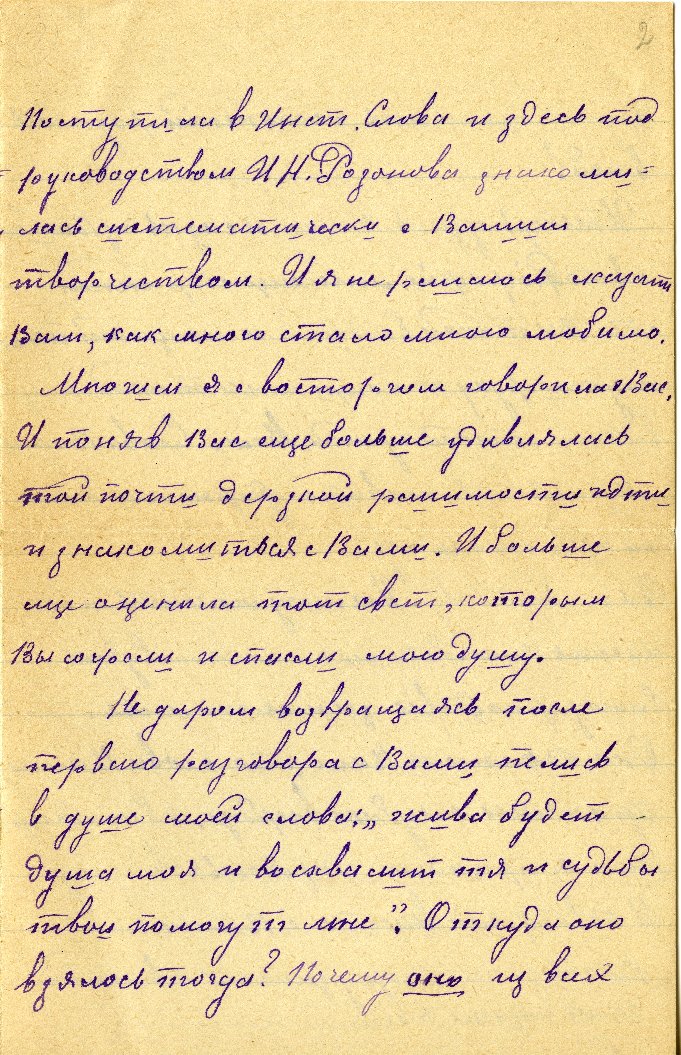 2
Поступила в Инст. Слова и здесь под
руководством И Н. Розонова знакоми=
лась систематически с Вашим
творчеством. И я не решаюсь сказать
Вам, как много стало мною любимо.
Многим я с восторгом говорила о Вас.
И поняв Вас еще больше удивлялась
той почти дерзкой решимости идти
и знакомиться с Вами. И больше
еще оценила тот свет, которым
Вы согрели и спасли мою душу.
Не даром возвращаясь после
первого разговора с Вами пелись
в душе моей слова: „жива будет
душа моя и восхвалит тя и судьбы
твои помогут мне". Откуда оно
взялось тогда? Почему оно из всех